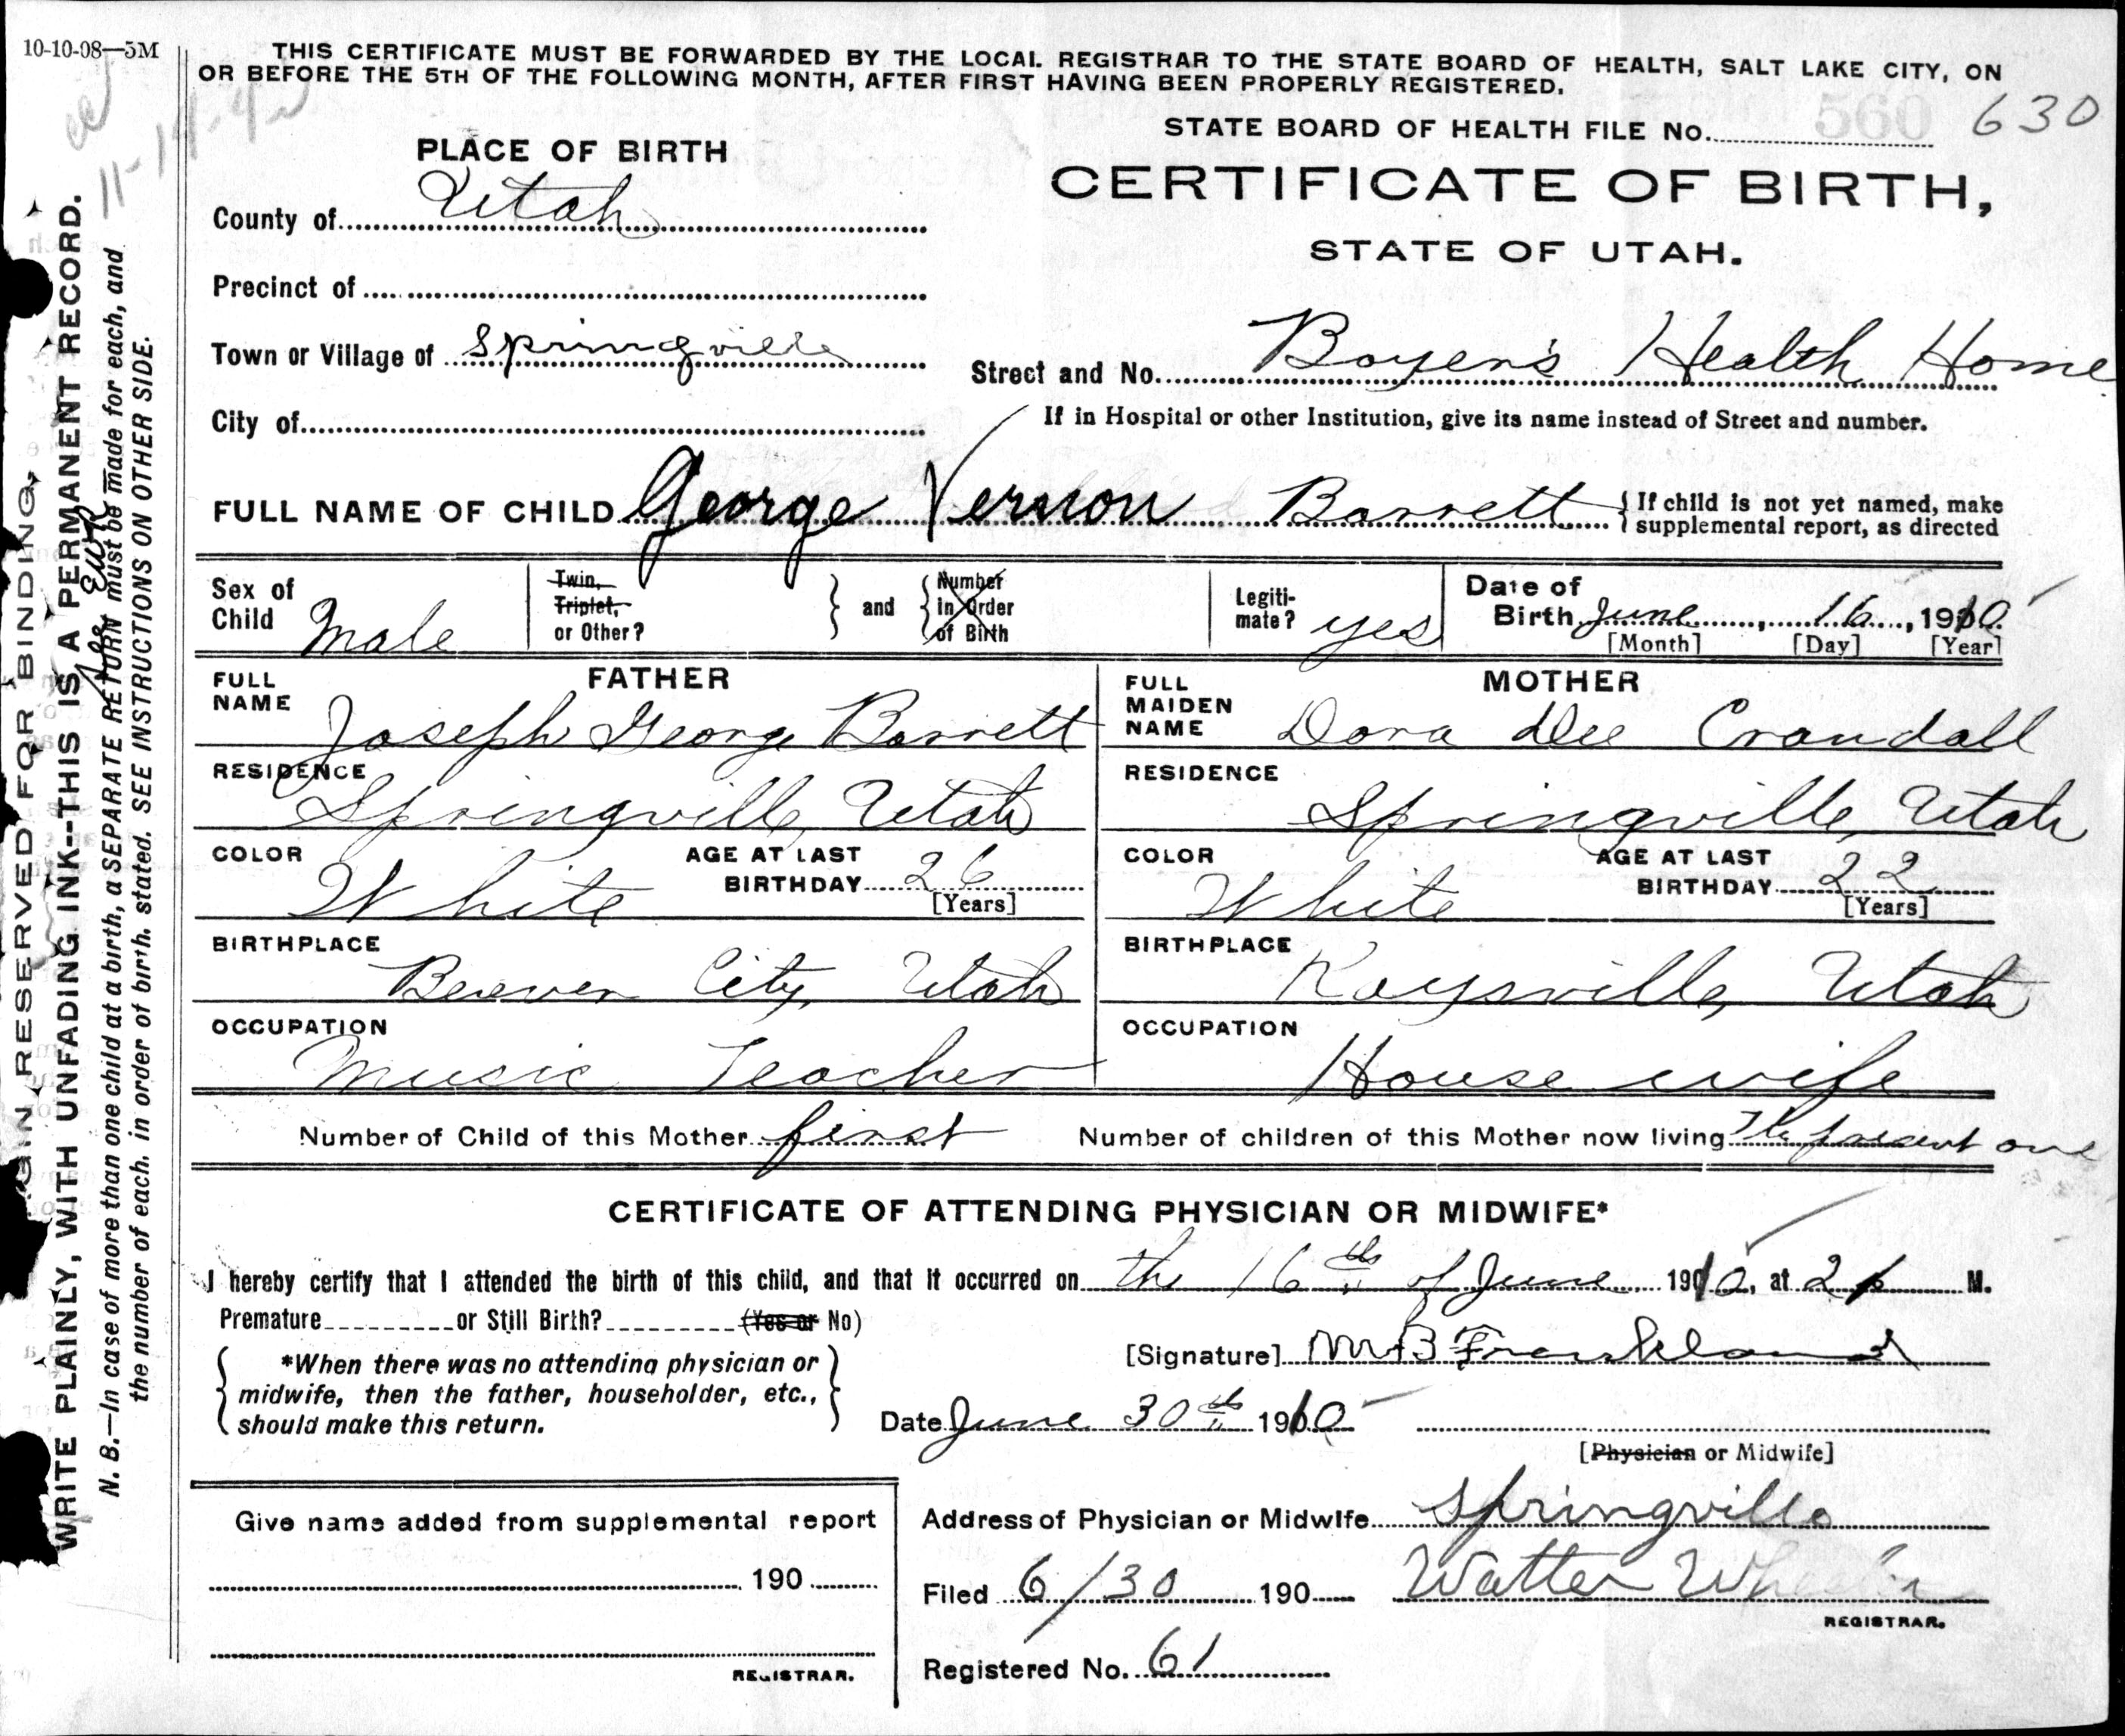 10-10-08—5M
THIS CERTIFICATE MUST BE FORWARDED BY THE LOCAL REGISTRAR TO THE STATE BOARD OF HEALTH, SALT LAKE CITY, ON
OR BEFORE THE 5TH OF THE FOLLOWING MONTH, AFTER FIRST HAVING BEEN PROPERLY REGISTERED.
11-14-42
STATE BOARD OF HEALTH FILE No. 560 630
PLACE OF BIRTH
CERTIFICATE OF BIRTH,
STATE OF UTAH.
County of Utah
Precinct of
Town or Village of Springville
Street and No. Boyer's Health Home
City of
If in Hospital or other Institution, give its name instead of Street and number.
FULL NAME OF CHILD George Vernon Barrett { If child is not yet named, make
supplemental report, as directed
Sex of Child Male
Twin, Triplet, or Other?
} and { Number in Order of Birth
Legiti-mate? yes
Date of Birth June 16, 1910
[Month] [Day] [Year]
FATHER
FULL NAME Joseph George Barrett
RESIDENCE Springville, Utah
COLOR White
AGE AT LAST BIRTHDAY 26
[Years]
BIRTHPLACE Beaver City, Utah
OCCUPATION Music Teacher
MOTHER
FULL MAIDEN NAME Dora Dee Crandall
RESIDENCE Springville, Utah
COLOR White
AGE AT LAST BIRTHDAY 22
[Years]
BIRTHPLACE Kaysville, Utah
OCCUPATION House wife
Number of Child of this Mother first
Number of children of this Mother now living The present one
CERTIFICATE OF ATTENDING PHYSICIAN OR MIDWIFE*
I hereby certify that I attended the birth of this child, and that it occurred on the 16th of June 1910, at 2 M.
Premature or Still Birth? (Yes or No)
*When there was no attending physician or
midwife, then the father, householder, etc.,
should make this return.
[Signature] M B Frankland
Date June 30th 1910
[Physician or Midwife]
Give name added from supplemental report
190
REGISTRAR.
Address of Physician or Midwife Springville
Filed 6/30 190
Walter Wheeler
REGISTRAR.
Registered No. 61
RESERVED FOR BINDING.
WRITE PLAINLY, WITH UNFADING INK--THIS IS A PERMANENT RECORD.
N. B.—In case of more than one child at a birth, a SEPARATE RETURN must be made for each, and
the number of each, in order of birth, stated. SEE INSTRUCTIONS ON OTHER SIDE.